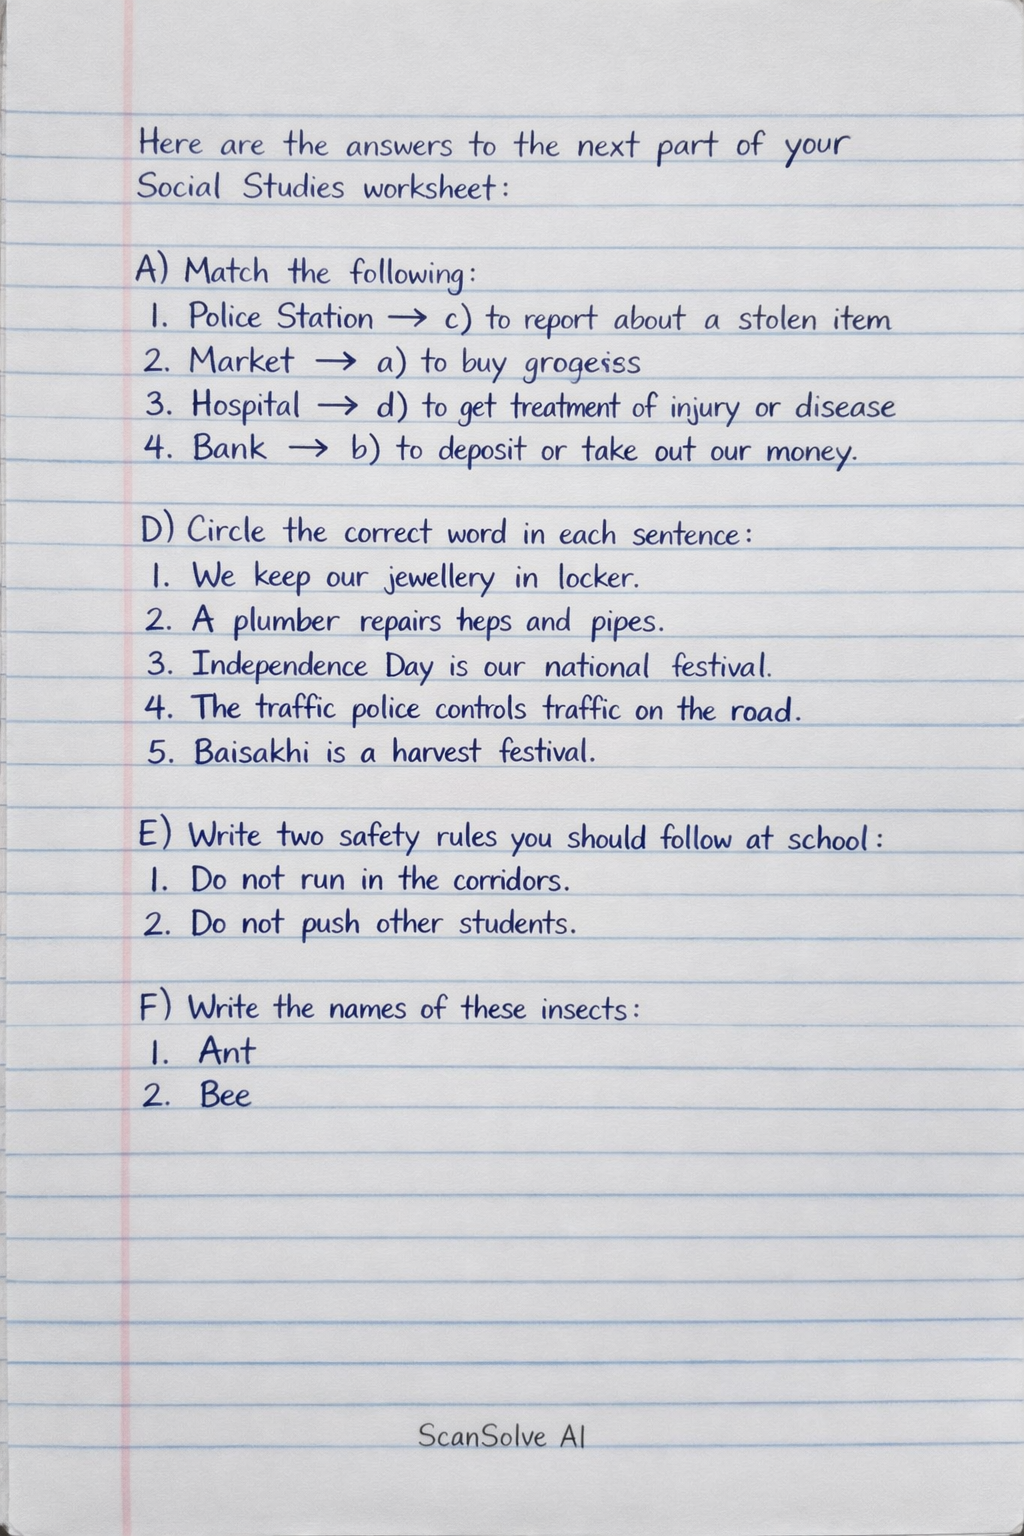 Here are the answers to the next part of your
Social Studies worksheet:
A) Match the following:
1. Police Station → c) to report about a stolen item
2. Market → a) to buy grogeisss
3. Hospital → d) to get treatment of injury or disease
4. Bank → b) to deposit or take out our money.
D) Circle the correct word in each sentence:
1. We keep our jewellery in locker.
2. A plumber repairs heps and pipes.
3. Independence Day is our national festival.
4. The traffic police controls traffic on the road.
5. Baisakhi is a harvest festival.
E) Write two safety rules you should follow at school:
1. Do not run in the corridors.
2. Do not push other students.
F) Write the names of these insects:
1. Ant
2. Bee
ScanSolve AI